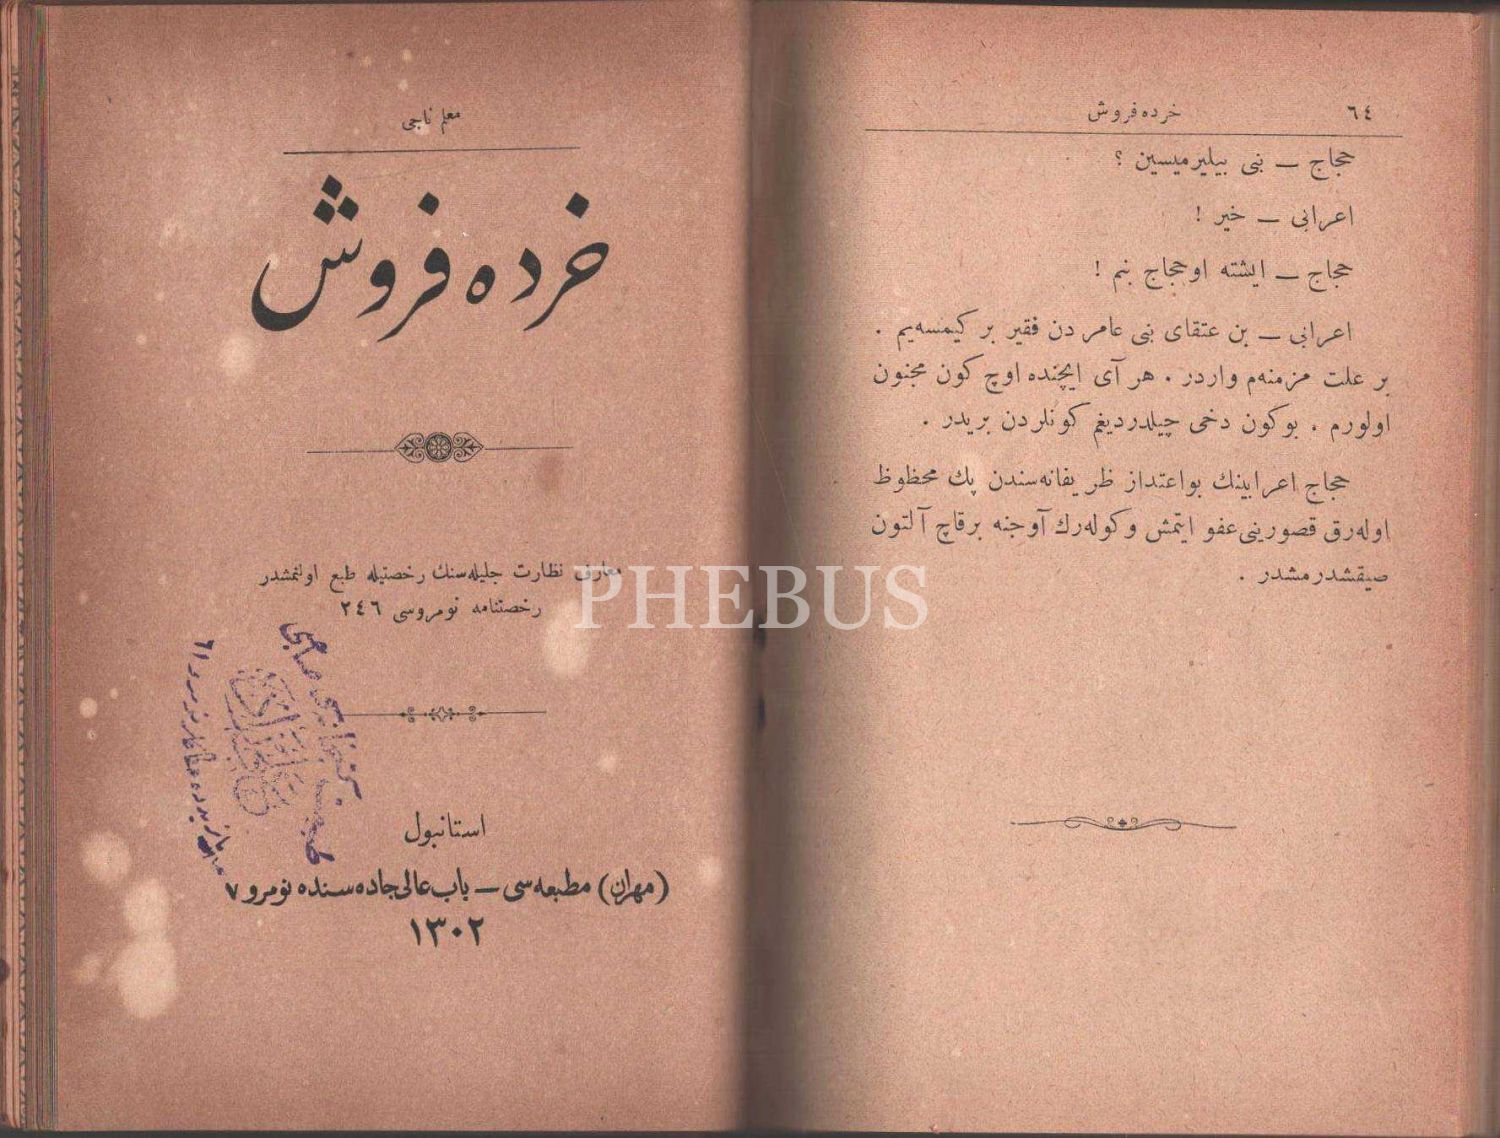 ٦٤
خرده فروش
حجاج — بنی بیلیرمیسین ؟
اعرابی — خیر !
حجاج — ایشته اوحجاج بنم !
اعرابی — بن عتقای بنی عامر دن فقیر بر کیمسه‌یم .
بر علت مزمنه‌م واردر . هر آی ایچنده اوچ کون مجنون
اولورم . بوکون دخی چیلدردیغم کونلردن بریدر .
حجاج اعرابینك بواعتذار ظریفانه‌سندن پك محظوظ
اوله‌رق قصورینی عفو ایتمش وکوله‌رك آوجنه برقاچ آلتون
صیقشدرمشدر .
معلم ناجی
خرده فروش
معارف نظارت جلیله‌سنك رخصتیله طبع اولنمشدر
رخصتنامه نومروسی ٢٤٦
استانبول
(مهران) مطبعه‌سی — باب عالی جاده‌سنده نومرو ٧
١٣٠٢
PHEBUS